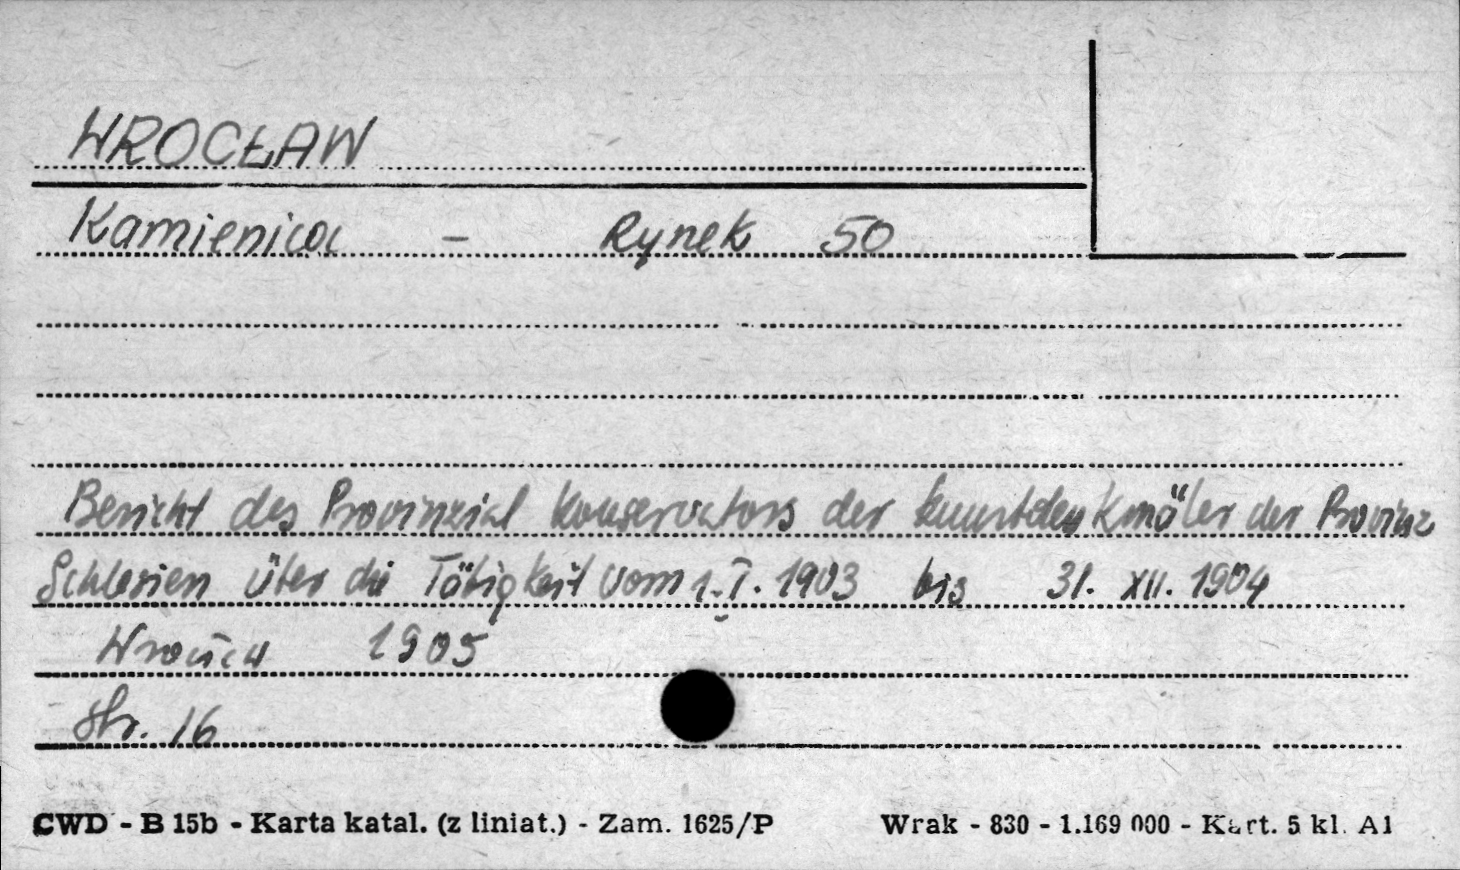 WROCŁAW
Kamienica - Rynek 50
Bericht des Provinzial Konservators der Kunstdenkmäler der Provinz
Schlesien über die Tätigkeit vom 1. I. 1903 bis 31. XII. 1904
Wrocław 1905
str. 16
CWD - B 15b - Karta katal. (z liniat.) - Zam. 1625/P Wrak - 830 - 1.169 000 - Kart. 5 kl. A1